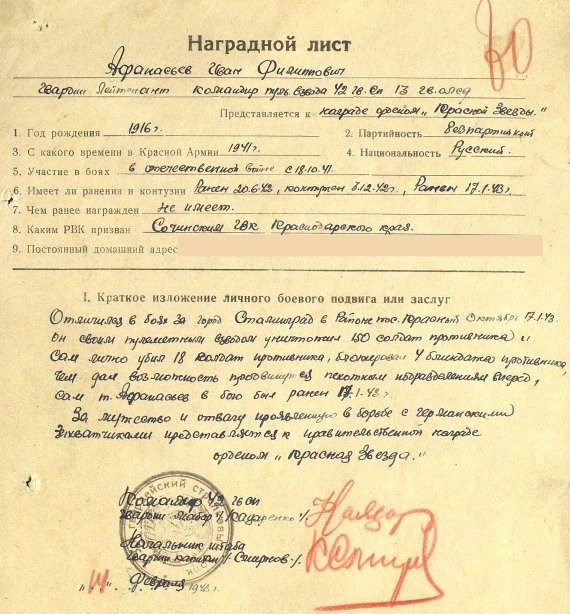 80
Наградной лист
Афанасьев Иван Филиппович
Гвардии Лейтенант Командир пуль. взвода 42 гв. сп 13 гв. олсд
Представляется к награде орденом „Красной Звезды."
1. Год рождения 1916 г. 2. Партийность беспартийный
3. С какого времени в Красной Армии 1941 г. 4. Национальность Русский.
5. Участие в боях в отечественной войне с 18.10.41.
6. Имеет ли ранения и контузии Ранен 20.6.42, контужен 5.12.42 г., Ранен 17.1.43 г.
7. Чем ранее награжден не имеет.
8. Каким РВК призван Сочинским ГВК Краснодарского края.
9. Постоянный домашний адрес
I. Краткое изложение личного боевого подвига или заслуг
Отличился в боях за город Сталинград в Районе пос. Красный Октябрь 17.1.43.
он своим пулеметным взводом уничтожил 150 солдат противника,
Сам лично убил 18 солдат противника, блокировал 4 блиндажа противника,
Чем дал возможность продвинутся пехотным подразделениям вперед,
Сам т. Афанасьев в бою был ранен 17.1.43 г.
За мужество и отвагу проявленную в борьбе с германскими
захватчиками представляется к правительственной награде
орденом „Красная Звезда."
Командир 42 гв сп
Гвардии Майор /-Казаренко-/.
Начальник штаба
Гвардии капитан /-Смирнов-/.
Февраля 1943 г.